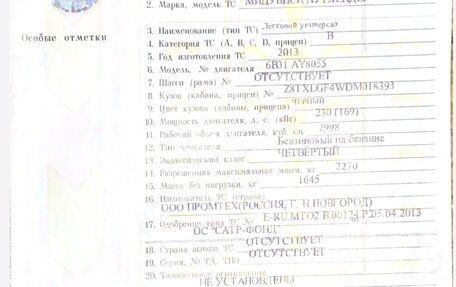 2. Марка, модель ТС МИЦУБИСИ АУТЛЕНДЕР
Особые отметки
3. Наименование (тип ТС) Легковой универсал
4. Категория ТС (А, В, С, D, прицеп) В
5. Год изготовления ТС 2013
6. Модель, № двигателя 6B31 AY8055
7. Шасси (рама) № ОТСУТСТВУЕТ
8. Кузов (кабина, прицеп) № Z8TXLGF4WDM018393
9. Цвет кузова (кабины, прицепа) ЧЕРНЫЙ
10. Мощность двигателя, л. с. (кВт) 230 (169)
11. Рабочий объем двигателя, куб. см 2998
12. Тип двигателя Бензиновый на бензине
13. Экологический класс ЧЕТВЕРТЫЙ
14. Разрешенная максимальная масса, кг 2270
15. Масса без нагрузки, кг 1645
16. Изготовитель ТС (страна)
ООО ПРОМТЕХ(РОССИЯ, Г. Н.НОВГОРОД)
17. Одобрение типа ТС № E-RU.MT02.B.00124.P2.05.04.2013
ОС "САТР-ФОНД"
18. Страна вывоза ТС ОТСУТСТВУЕТ
19. Серия, № ТД, ТПО ОТСУТСТВУЕТ
20. Таможенные ограничения
НЕ УСТАНОВЛЕНЫ